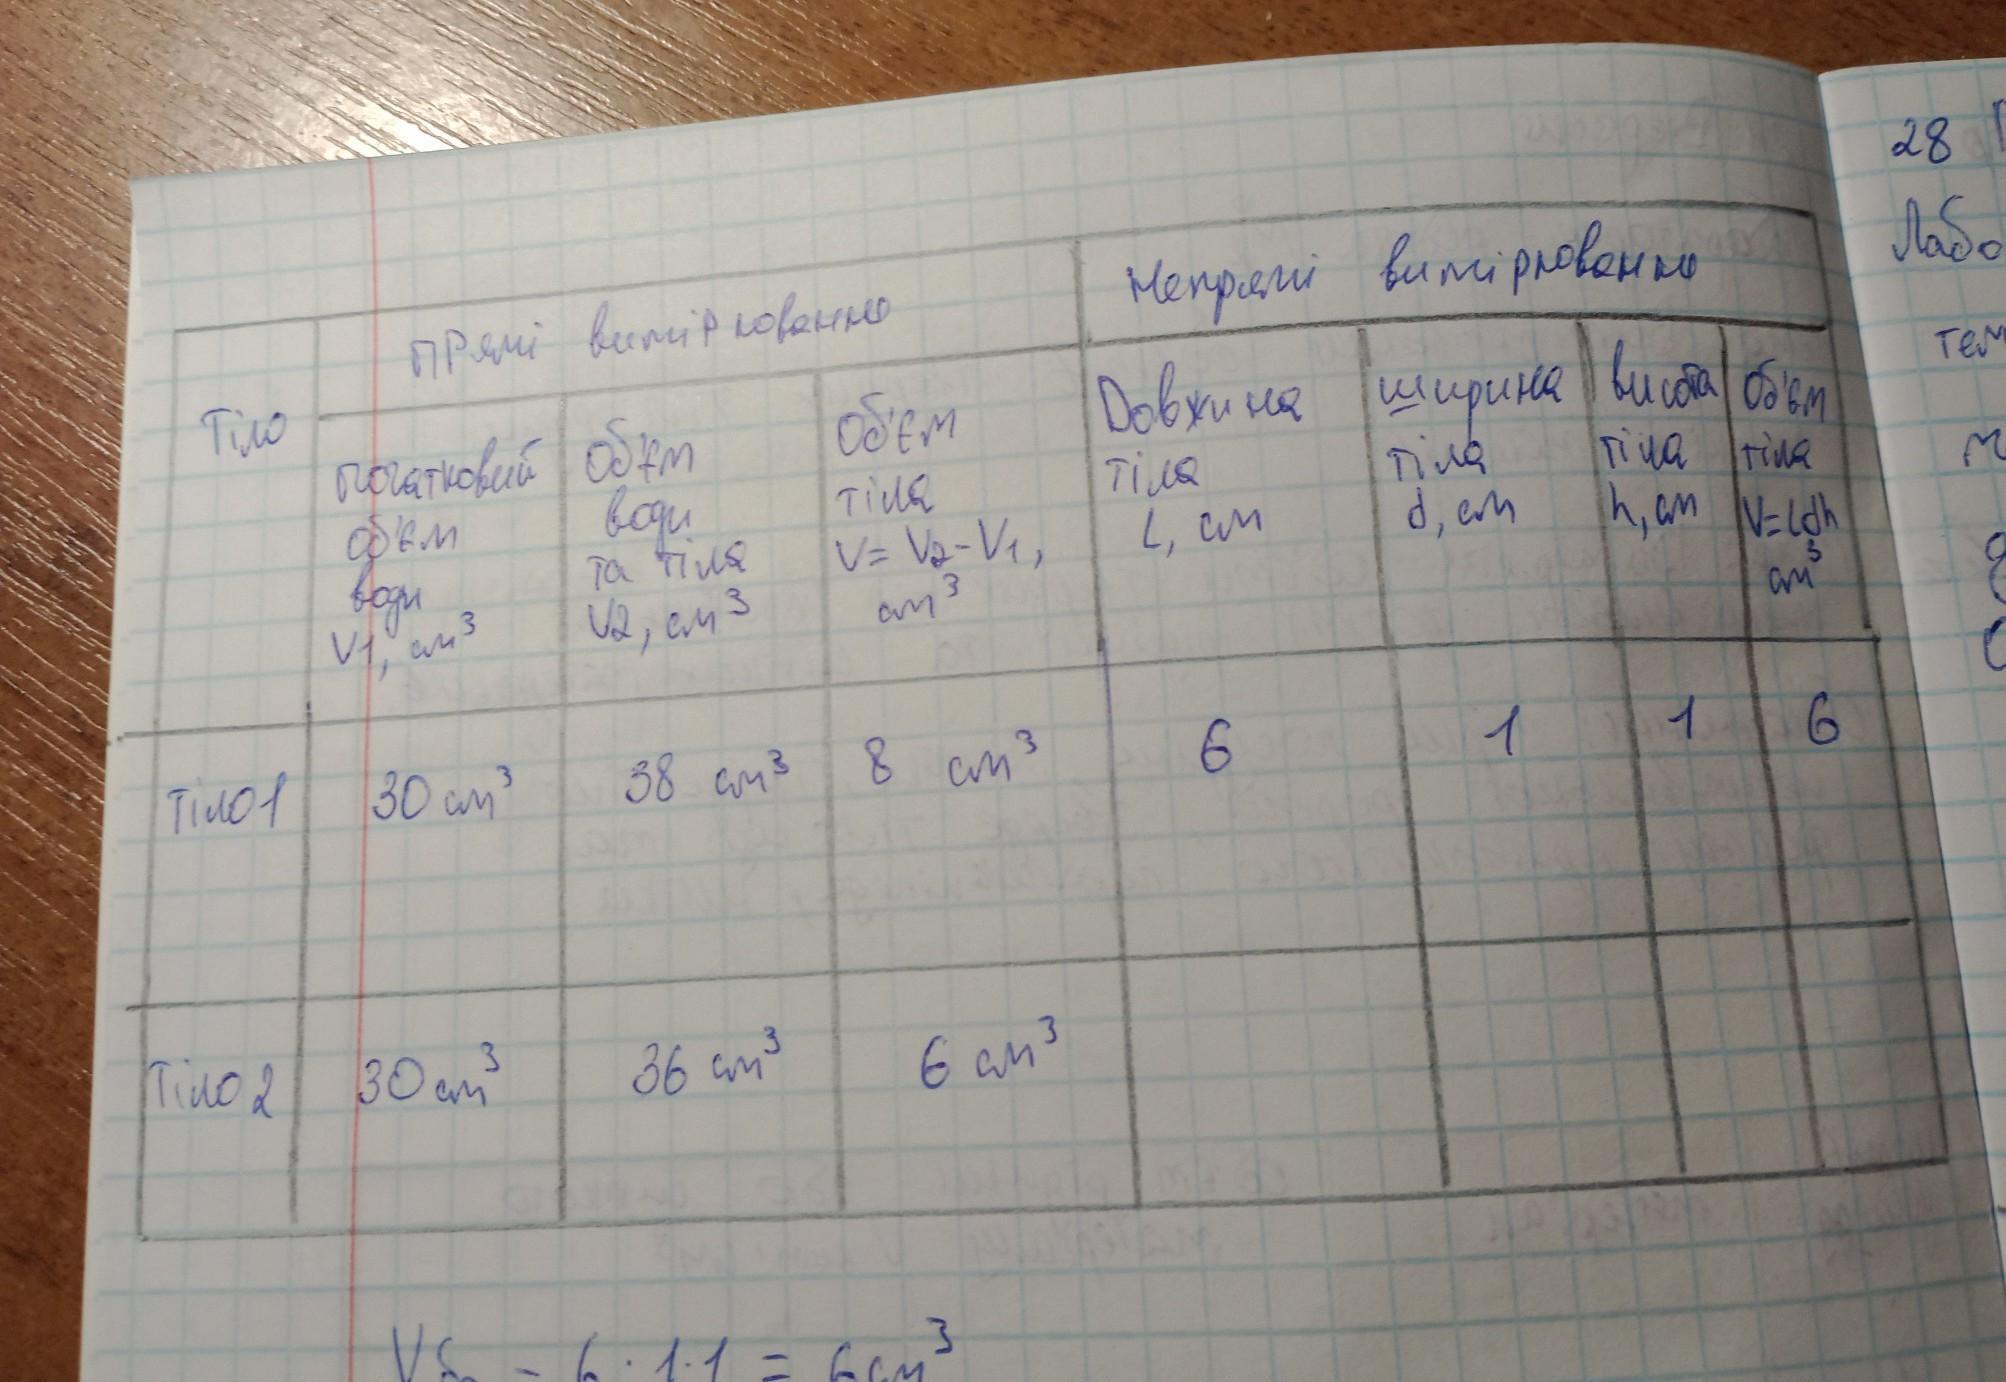 Прямі вимірювання
Непрямі вимірювання
Тіло
початковий
об'єм
води
V1, см³
Об'єм
води
та тіла
V2, см³
Об'єм
тіла
V= V2-V1,
см³
Довжина
тіла
L, см
ширина
тіла
d, см
висота
тіла
h, см
Об'єм
тіла
V=Ldh
см³
Тіло1
30 см³
38 см³
8 см³
6
1
1
6
Тіло2
30 см³
36 см³
6 см³
6·1·1 = 6 см³
28
Лабо
тем